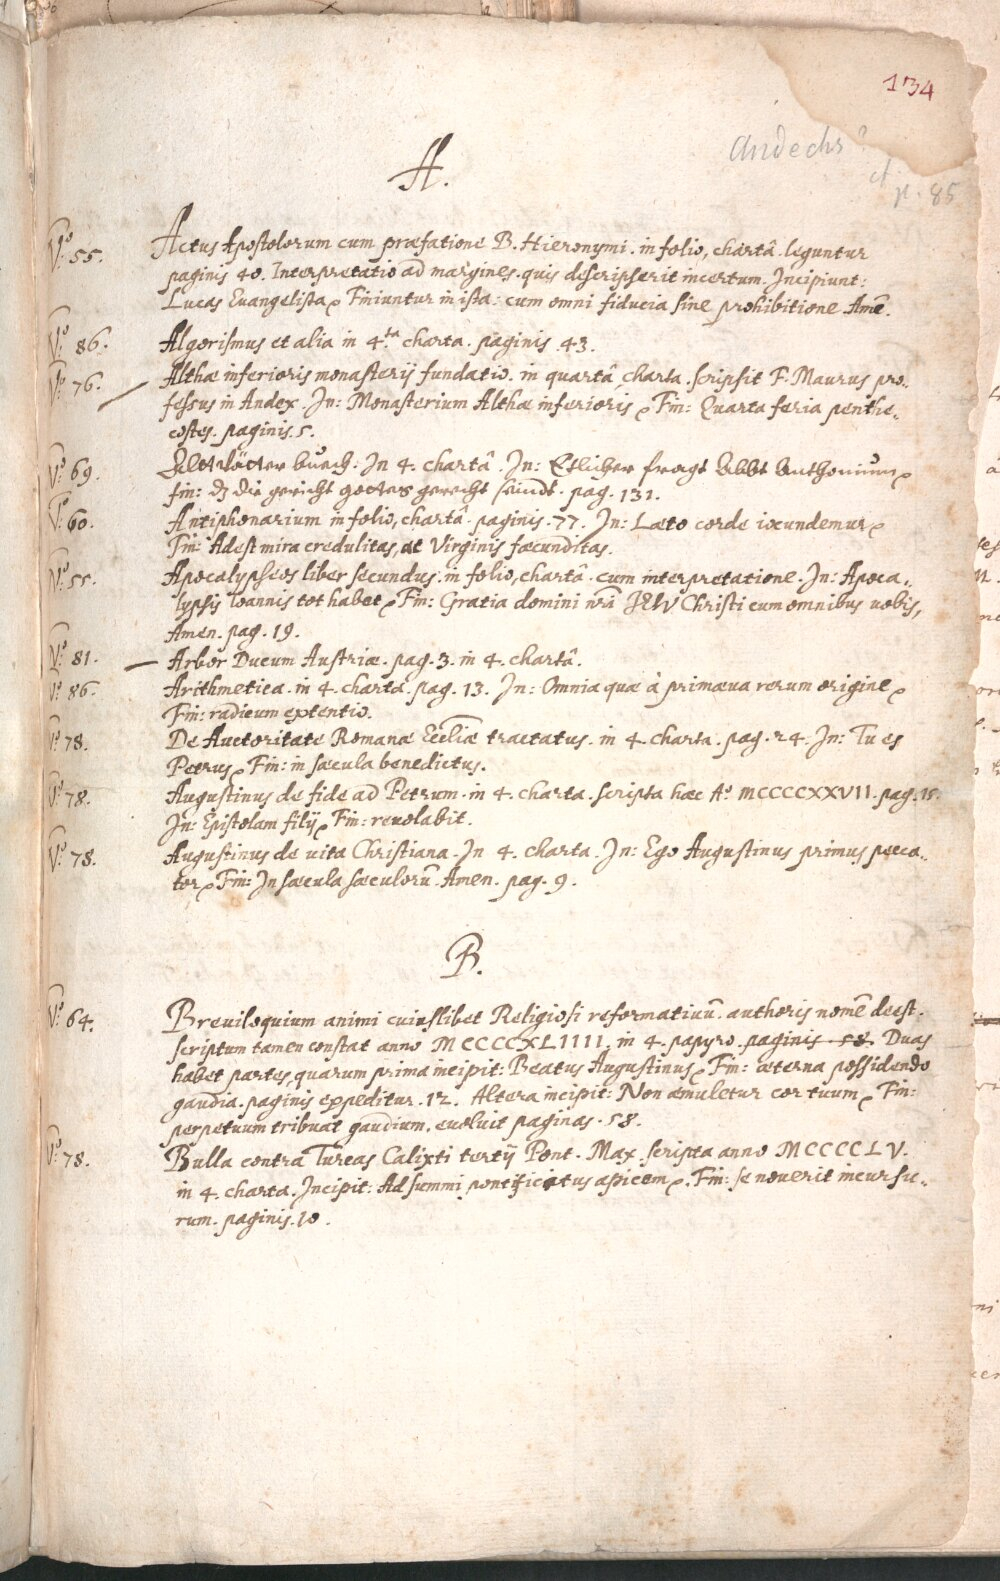 134
Andechs?
cf p. 85
A.
Vº. 55. Actus Apostolorum cum præfatione B. Hieronymi. in folio, chartâ. leguntur
paginis 40. Interpretatio ad margines. quis descripserit incertum. Incipiunt:
Lucas Euangelista, Finiuntur in ista: cum omni fiducia sine prohibitione Amē.
Vº. 86. Algorismus et alia in 4.ta charta. paginis 43.
Vº. 76. Althæ inferioris monasterij fundatio. in quartâ charta. scripsit F. Maurus pro-
fessus in Andex. In: Monasterium Althæ inferioris, Fin: Quarta feria penthe-
costes. paginis. 5.
Vº. 69. Altvätter buech. In 4. chartâ. In: Etlicher fragt Abbt Anthonium,
fin: dz die gericht gottes gerecht seindt. pag. 131.
Vº. 60. Antiphonarium in folio, chartâ. paginis. 77. In: Læto corde iocundemur,
Fin: Adest mira credulitas, at Virginis fæcunditas.
Vº. 55. Apocalypseos liber secundus. in folio, chartâ. cum interpretatione. In: Apoca-
lypsis Ioannis tot habet, Fin: Gratia domini nr̄i Christi cum omnibus uobis,
Amen. pag. 19.
Vº. 81. Arbor Ducum Austriæ. pag. 3. in 4. chartâ.
Vº. 86. Arithmetica. in 4. charta. pag. 13. In: Omnia quæ à primæua rerum origine,
Fin: radicum extentio.
Vº. 78. De Auctoritate Romanæ Eccliæ tractatus. in 4. charta. pag. 24. In: Tu es
Petrus, Fin: in sæcula benedictus.
Vº. 78. Augustinus de fide ad Petrum. in 4. charta. scripta hæc Aº. MCCCCXXVII. pag. 15.
In: Epistolam filij, Fin: reuelabit.
Vº. 78. Augustinus de uita Christiana. In 4. charta. In: Ego Augustinus primus pecca-
tor, Fin: In sæcula sæculorū. Amen. pag. 9.
B.
Vº. 64. Breuiloquium animi cuiuslibet Religiosi reformatiuū. authoris nomē deest.
scriptum tamen constat anno MCCCCXLIIII. in 4. papyro. paginis 58. Duas
habet partes, quarum prima incipit: Beatus Augustinus, Fin: æterna possidendo
gaudia. paginis expeditur. 12. Altera incipit: Non æmuletur cor tuum, Fin:
perpetuum tribuat gaudium. euoluit paginas. 58.
Vº. 78. Bulla contra Turcas Calixti tertij Pont. Max. scripta anno MCCCCLV.
in 4. charta. Incipit: Ad summi pontificatus apicem, Fin: se nouerit incursu-
rum. paginis. 10.